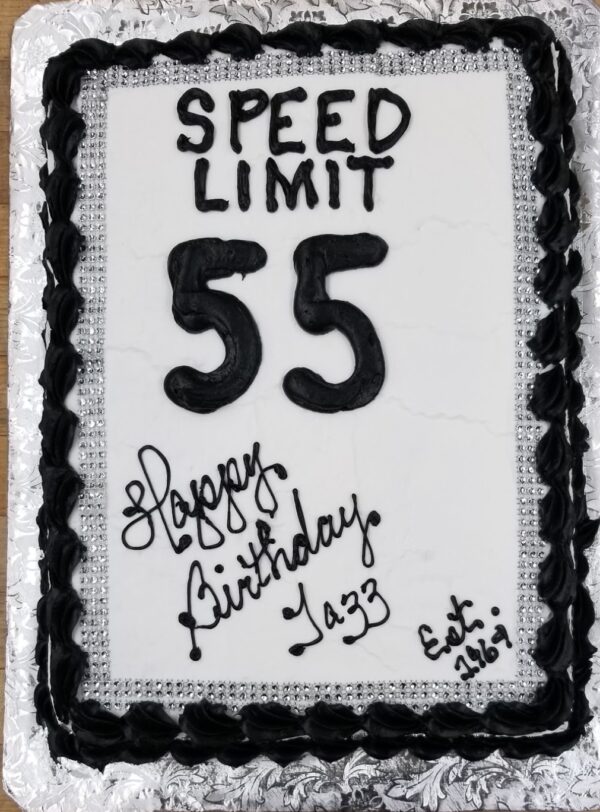 SPEED
LIMIT
55
Happy
Birthday
Jazz
Est.
1969